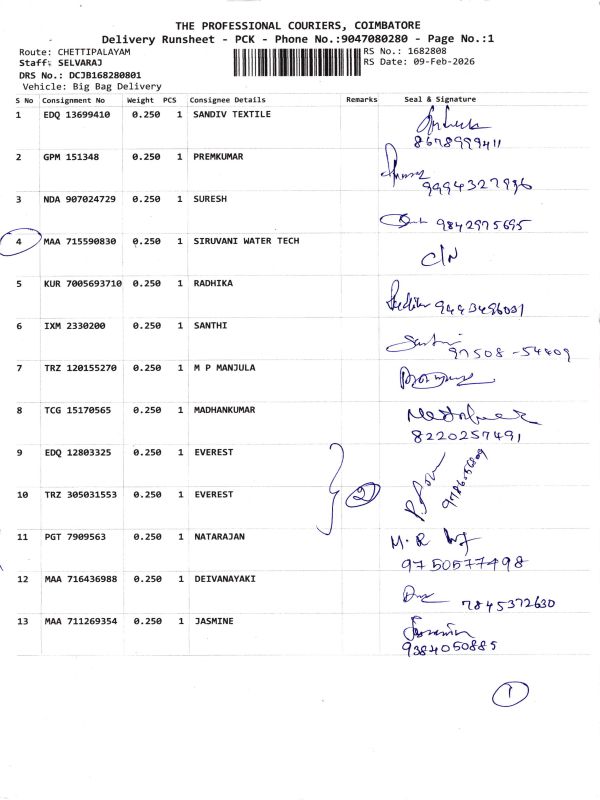 THE PROFESSIONAL COURIERS, COIMBATORE
Delivery Runsheet - PCK - Phone No.:9047080280 - Page No.:1
Route: CHETTIPALAYAM RS No.: 1682808
Staff: SELVARAJ RS Date: 09-Feb-2026
DRS No.: DCJB168280801
Vehicle: Big Bag Delivery
S No Consignment No Weight PCS Consignee Details Remarks Seal & Signature
1 EDQ 13699410 0.250 1 SANDIV TEXTILE
8678999411
2 GPM 151348 0.250 1 PREMKUMAR
9994327936
3 NDA 907024729 0.250 1 SURESH
9842975695
4 MAA 715590830 0.250 1 SIRUVANI WATER TECH
C/N
5 KUR 7005693710 0.250 1 RADHIKA
9443496031
6 IXM 2330200 0.250 1 SANTHI
97508-54409
7 TRZ 120155270 0.250 1 M P MANJULA
8 TCG 15170565 0.250 1 MADHANKUMAR
8220257491
9 EDQ 12803325 0.250 1 EVEREST
10 TRZ 305031553 0.250 1 EVEREST
2
11 PGT 7909563 0.250 1 NATARAJAN
M.R
9750577498
12 MAA 716436988 0.250 1 DEIVANAYAKI
7845372630
13 MAA 711269354 0.250 1 JASMINE
9384050885
1